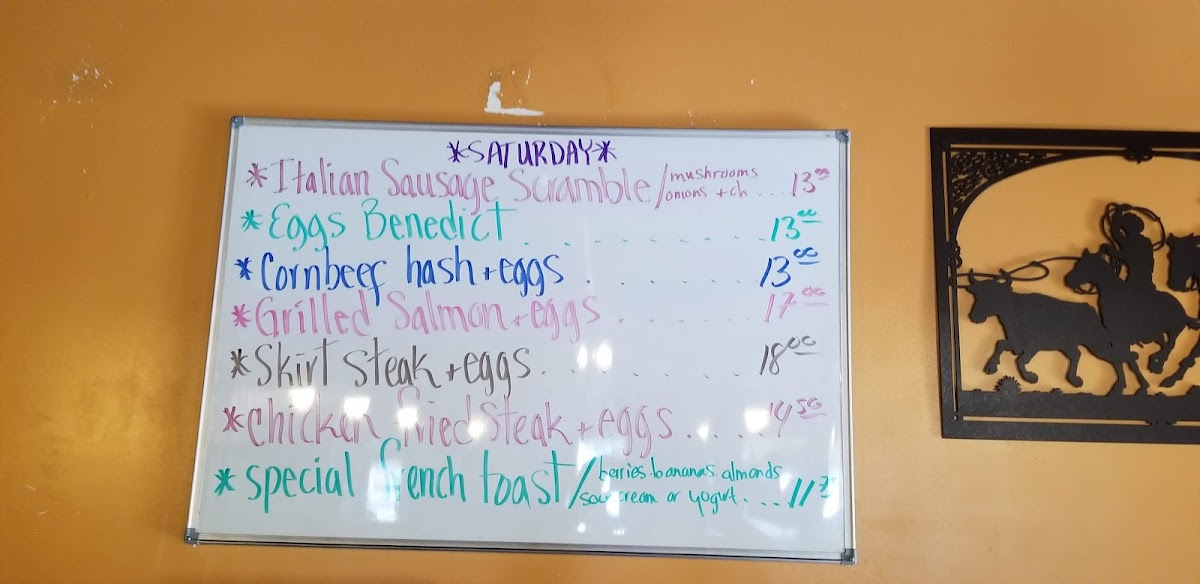 *SATURDAY*
*Italian Sausage Scramble/mushrooms onions + ch ... 13⁰⁰
*Eggs Benedict . . . . . . . . . . . 13⁰⁰
*Cornbeef hash + eggs . . . . . . 13⁰⁰
*Grilled Salmon + eggs . . . . . . 17⁰⁰
*Skirt steak + eggs. . . . . . . . 18⁰⁰
*Chicken fried steak + eggs . . . . . 14⁵⁰
*special french toast/berries. bananas. almonds
sour cream or yogurt. ... 11